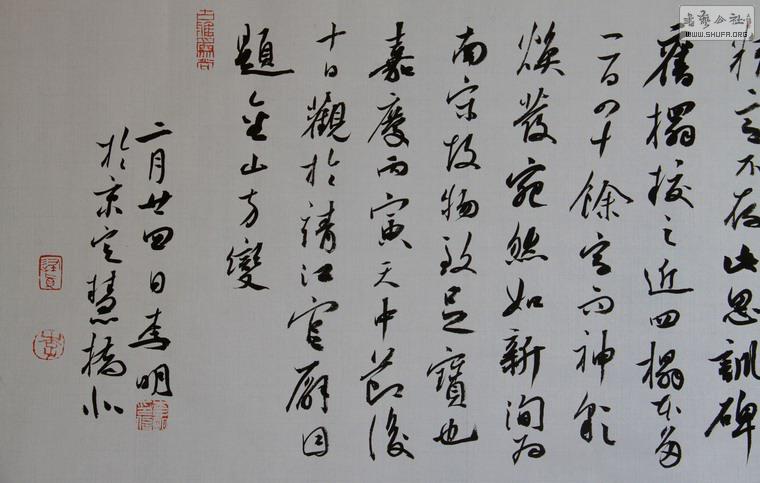 字不存此思訓碑
舊搨校之近四搨本多
一百四十餘字而神彩
煥發宛然如新洵為
南宋故物致足寶也
嘉慶丙寅天中節後
十日觀於靖江官廨因
題金山方變
二月廿四日李明
於京定慧橋北
书艺公社
WWW.SHUFA.ORG